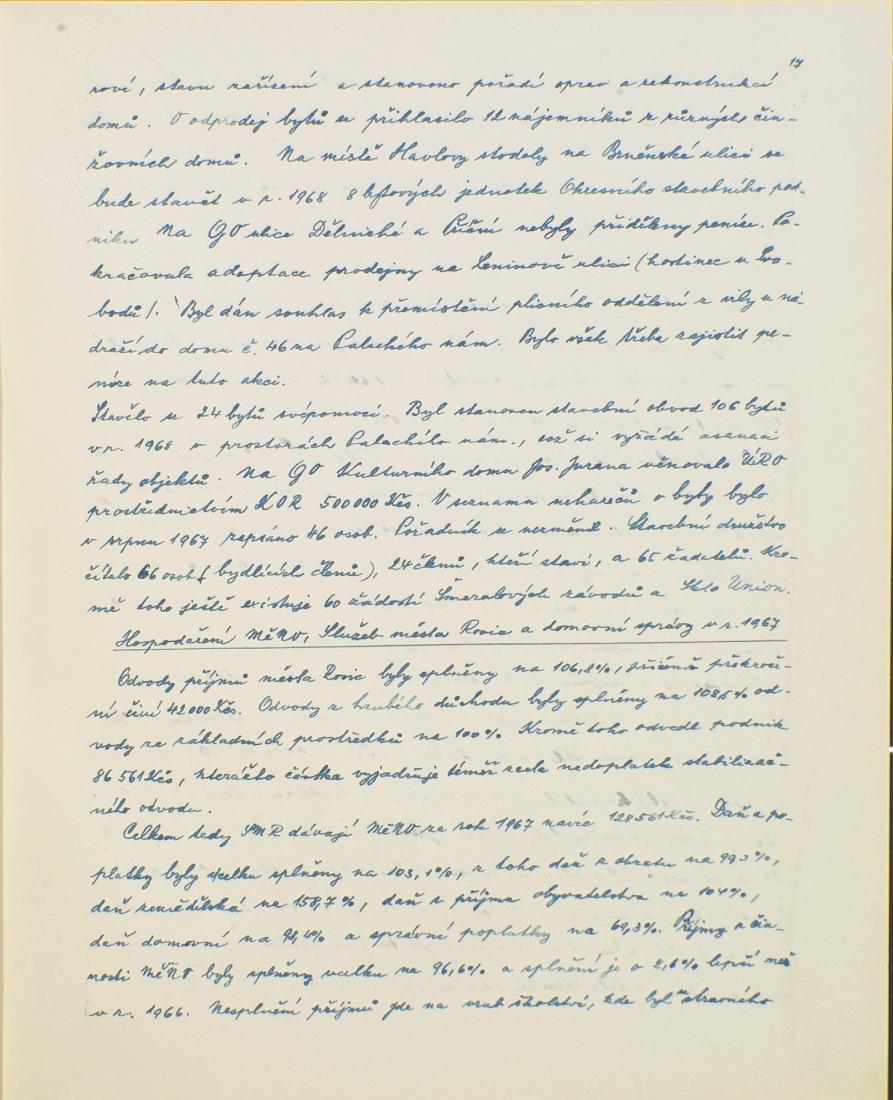 17
rové, stavu zařízení a stanoveno pořadí oprav a rekonstrukcí
domů. O odprodej bytů se přihlásilo 12 nájemníků z různých čin-
žovních domů. Na místě Havlovy stodoly na Brněnské ulici se
bude stavět v r. 1968 8 bytových jednotek Okresního stavebního pod-
niku Na GO ulice Dělnické a Příční nebyly příděleny peníze. Po-
kračovala adaptace prodejny na Leninově ulici (hostinec u Svo-
bodů). Byl dán souhlas k přemístění plicního oddělení z vily u ná-
draží do domu č. 46 na Palackého nám. Bylo však třeba zajistit pe-
níze na tuto akci.
Stavělo se 24 bytů svépomocí. Byl stanoven stavební obvod 106 bytů
v r. 1968 v prostorách Palackého nám., což si vyžádá asanaci
řady objektů. Na GO Kulturního domu Jos. Jurana věnovalo ÚRO
prostřednictvím KOR 500 000 Kčs. V seznamu uchazečů o byty bylo
v srpnu 1967 zapsáno 46 osob. Pořadník se nezměnil. Stavební družstvo
čítalo 66 osob (bydlících členů), 24 členů, kteří staví, a 65 žadatelů. Kro-
mě toho ještě existuje 60 žádostí Šmeralových závodů a Sklo Union.
Hospodaření MěNV, Služeb města Rosic a domovní správy v r. 1967
Odvody příjmů města Rosic byly splněny na 106,2%, přičemž překroče-
ní činí 42 000 Kčs. Odvody z hrubého důchodu byly splněny na 108,5% od-
vody ze základních prostředků na 100% Kromě toho odvedl podnik
86 561 Kčs, kterážto částka vyjadřuje téměř zcela nedoplatek stabilizač-
ního odvodu.
Celkem tedy SMR dávají MěNV za rok 1967 navíc 128 561 Kčs. Daň a po-
platky byly vcelku splněny na 103,1%, z toho daň z obratu na 99,3%,
daň zemědělská na 158,7%, daň z příjmu obyvatelstva na 104%,
daň domovní na 92,4% a správní poplatky na 69,3%. Příjmy z čin-
nosti MěNV byly splněny vcelku na 96,6% a splnění je o 2,6% lepší než
v r. 1966. Nesplnění příjmů jde na vrub školství, kde byl stravného